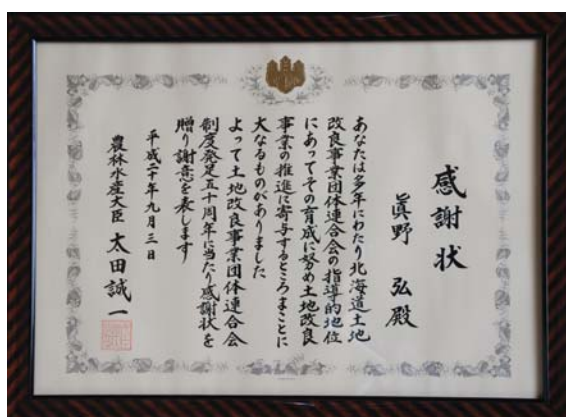 感謝状
眞野 弘 殿
あなたは多年にわたり北海道土地
改良事業団体連合会の指導的地位
にあってその育成に努め土地改良
事業の推進に寄与するところまことに
大なるものがありました
よって土地改良事業団体連合会
制度発足五十周年に当たり感謝状を
贈り謝意を表します
平成二十年九月三日
農林水産大臣 太田誠一